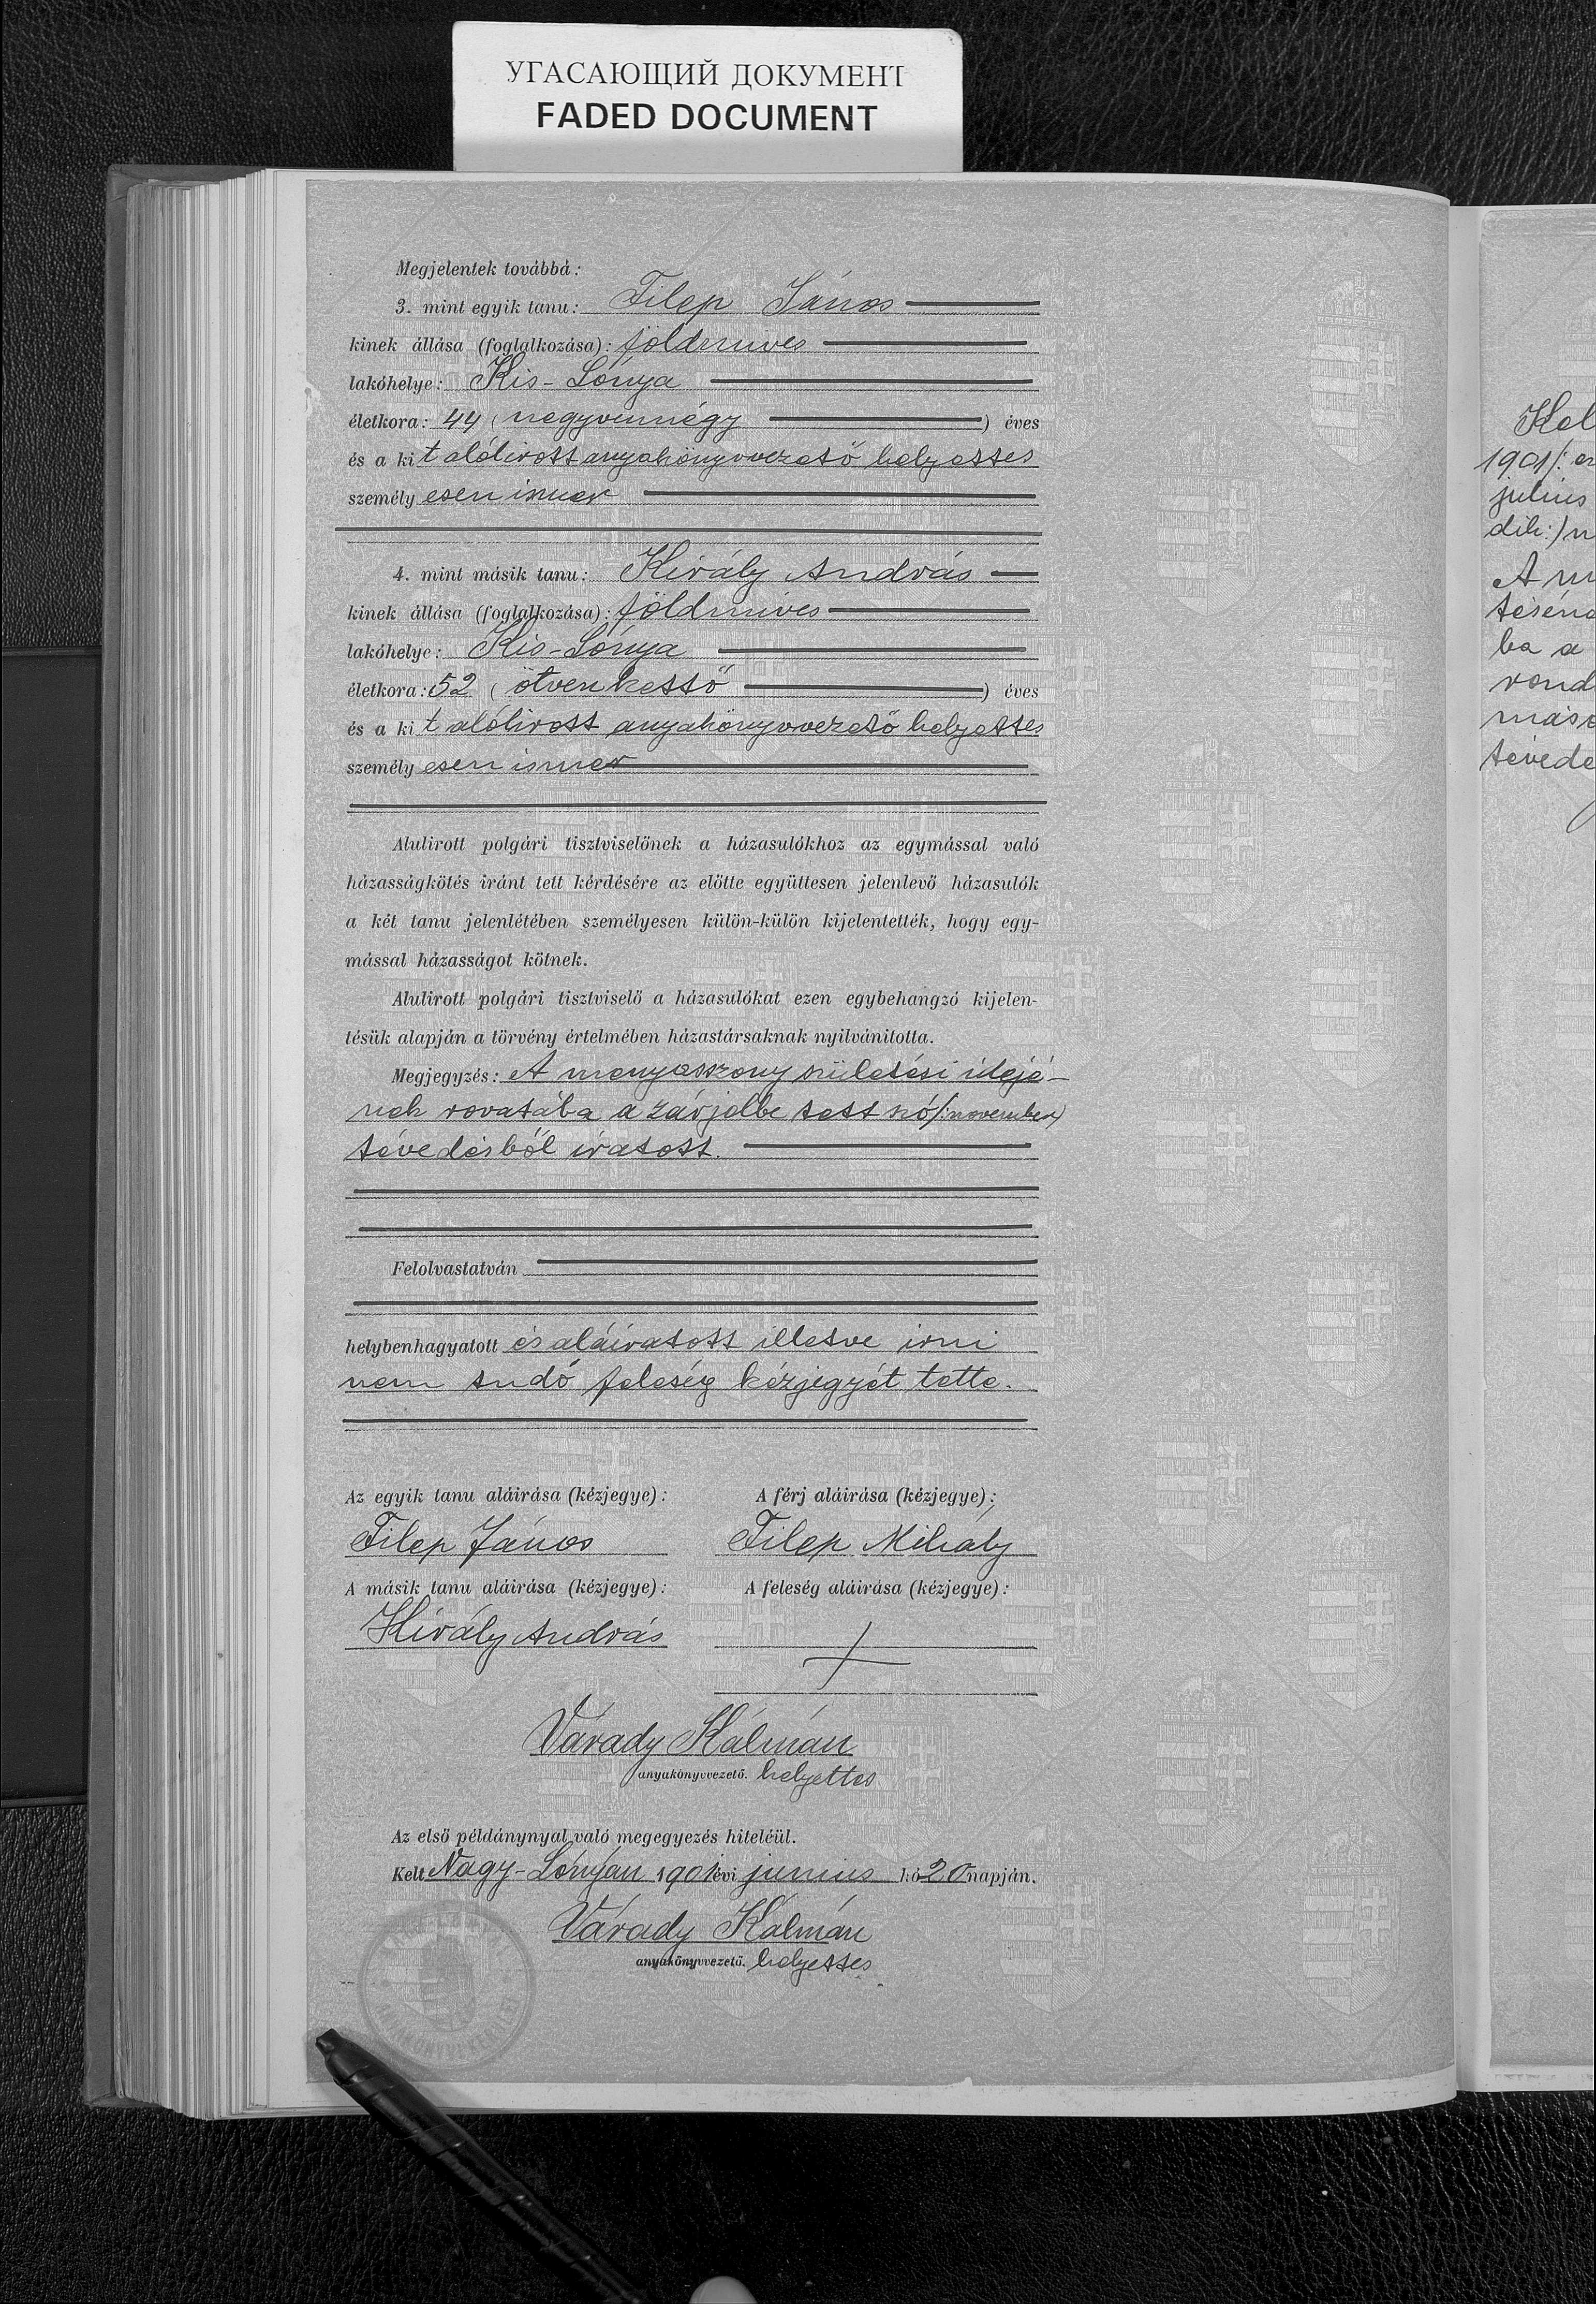 УГАСАЮЩИЙ ДОКУМЕНТ
FADED DOCUMENT
Megjelentek továbbá:
3. mint egyik tanu: Filep János
kinek állása (foglalkozása): földmives
lakóhelye: Kis-Lónya
életkora: 44 (negyvennégy) éves
és a kit alólirott anyakönyvvezető helyettes
személyesen ismer
4. mint másik tanu: Király András
kinek állása (foglalkozása): földmives
lakóhelye: Kis-Lónya
életkora: 52 (ötvenkettő) éves
és a kit alólirott anyakönyvvezető helyettes
személyesen ismer
Alulirott polgári tisztviselőnek a házasulókhoz az egymással való
házasságkötés iránt tett kérdésére az előtte együttesen jelenlevő házasulók
a két tanu jelenlétében személyesen külön-külön kijelentették, hogy egy-
mással házasságot kötnek.
Alulirott polgári tisztviselő a házasulókat ezen egybehangzó kijelen-
tésük alapján a törvény értelmében házastársaknak nyilvánitotta.
Megjegyzés: A menyasszony születési idejé-
nek rovatába a zárjelbe tett szó /:november/
tévedésből iratott.
Felolvastatván
helybenhagyatott és aláiratott illetve irni
nem tudó feleség kézjegyét tette.
Az egyik tanu aláirása (kézjegye): A férj aláirása (kézjegye):
Filep János Filep Mihály
A másik tanu aláirása (kézjegye): A feleség aláirása (kézjegye):
Király András +
Várady Kálmán
anyakönyvvezető. helyettes
Az első példánynyal való megegyezés hiteléül.
Kelt Nagy-Lónyan 1901 évi junius hó 20 napján.
Várady Kálmán
anyakönyvvezető. helyettes
ANYAKÖNYVI KERÜLET
Kel
1901/: er
julius
dik:) n
A m
ba a
rond
tévede